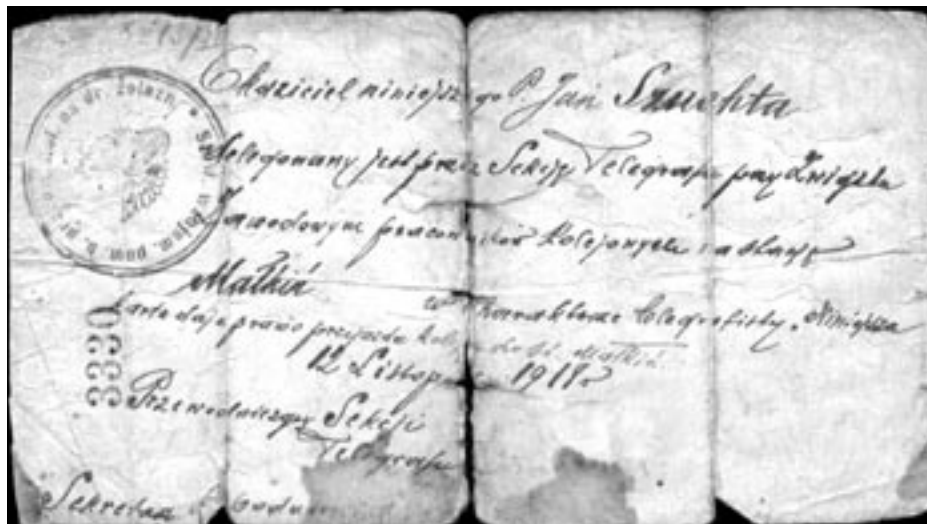 Okaziciel niniejszego P. Jan Szuchta
delegowany jest przez Sekcję Telegrafu przy Związku
Zawodowym pracowników kolejowych na stację
Małkiń w charakterze telegrafisty. Niniejsza
karta daje prawo przejazdu do st. Małkiń
12 Listopada 1918 r
Przewodniczący Sekcji
Telegrafu
Sekretarz
3330